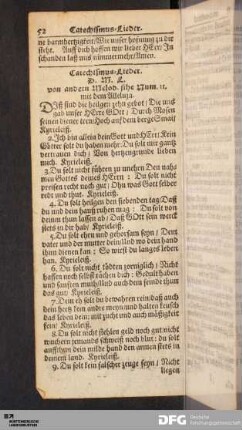 52 Catechismus-Lieder.
ne barmhertzigkeit: Wie unser hofnung zu dir
steht. Auff dich hoffen wir lieber HErr: In
schanden laß uns nimmermehr/Amen.
Catechismus-Lieder.
D. M. L.
von andern Melod. siehe Num. 11.
mit dem Alleluja.
Diß sind die heilgen zehn gebot; Die uns
gab unser HErre GOtt; Durch Mosen
seinen diener treu; Hoch auf dem berge Sinai/
Kyrieleiß.
2. Ich bin allein dein Gott und HErr: Kein
Götter solt du haben mehr: Du solt mir gantz
vertrauen dich; Von hertzengrunde lieben
mich. Kyrieleiß.
3. Du solt nicht führen zu unehrn Den nah-
men Gottes deines HErrn: Du solt nicht
preisen recht noch gut; Ohn was Gott selber
redt und thut. Kyrieleiß.
4. Du solt heilgen den siebenden tag; Daß
du und dein hauß ruhen mag: Du solt von
deinem thun lassen ab; Daß GOtt sein werck
in dir hab. Kyrieleiß.
5. Du solt ehrn und gehorsam seyn; Dem
vater und der mutter dein; Und wo dein hand
ihn dienen kan; So wirst du langes leben
han. Kyrieleiß.
6. Du solt nicht tödten zorniglich; Nicht
hassen noch selbst rächen dich: Gedult haben
und sanften muth; Und auch dem feinde thun
das gut. Kyrieleiß.
7. Dein eh solt du bewahren rein; daß auch
dein hertz kein andre meyn: und halten keusch
das leben dein; mit zucht und auch mäßigkeit
fein. Kyrieleiß.
8. Du solt nicht stehlen geld noch gut; nicht
wuchern jemands schweiß noch blut: du solt
aufthun dein milde hand den armen in
deinem land. Kyrieleiß.
9. Du solt kein falscher zeuge seyn; Nicht
liegen
DFG Deutsche
Forschungsgemeinschaft